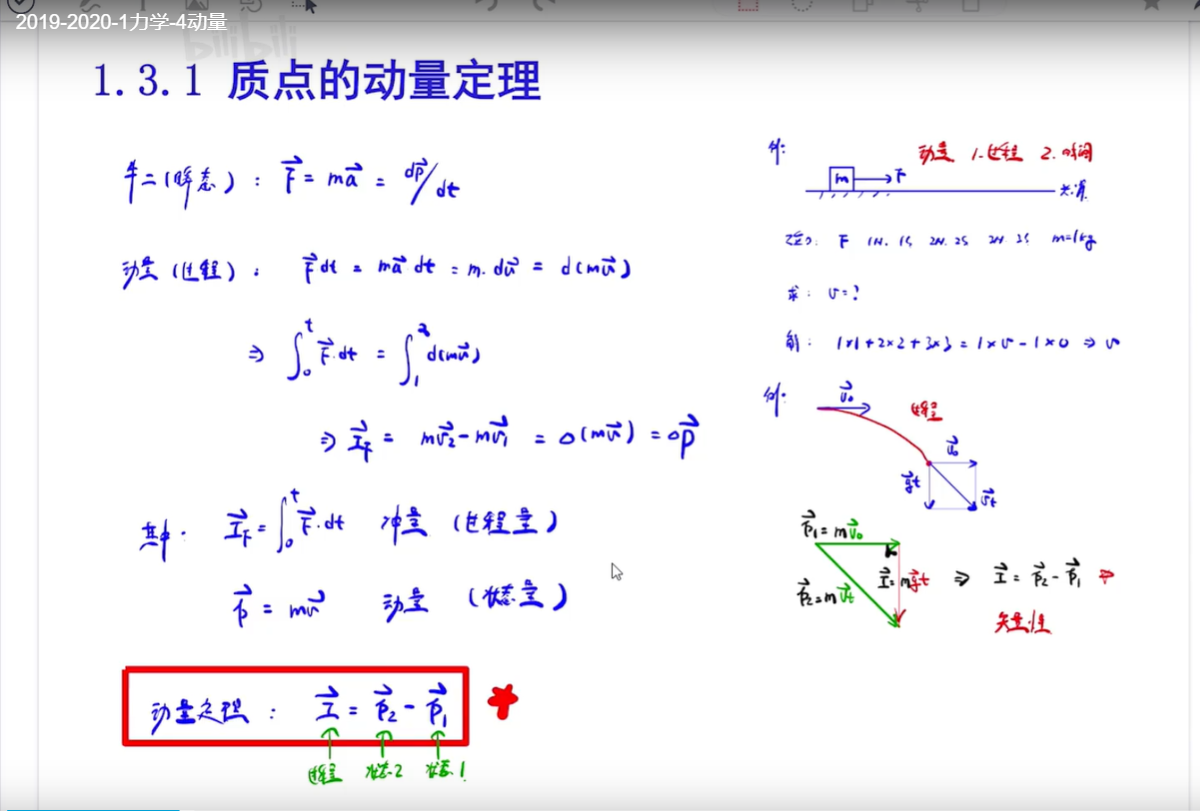 2019-2020-1力学-4动量
bilibili
1.3.1 质点的动量定理
牛二(瞬态): F⃗ = ma⃗ = dp⃗/dt
动量(过程): F⃗dt = ma⃗dt = m·dv⃗ = d(mv⃗)
⇒ ∫₀ᵗ F⃗·dt = ∫₁² d(mv⃗)
⇒ I⃗_F = mv⃗₂ - mv⃗₁ = Δ(mv⃗) = Δp⃗
其中: I⃗_F = ∫₀ᵗ F⃗·dt 冲量 (过程量)
p⃗ = mv⃗ 动量 (状态量)
动量定理: I⃗ = p⃗₂ - p⃗₁
过程 状态2 状态1
例: 动量 1.过程 2.时间
m F
光滑
F 1N. 1S 2N. 2S m=1kg
求: v=?
解: 1×1+2×2+3×3=1×v-1×0 ⇒ v
例:
v⃗₀
过程
v⃗₀
g⃗t
v⃗t
p⃗₁=mv⃗₀
p⃗₂=mv⃗t
I⃗=mg⃗t ⇒ I⃗ = p⃗₂ - p⃗₁ ⇒
矢量性